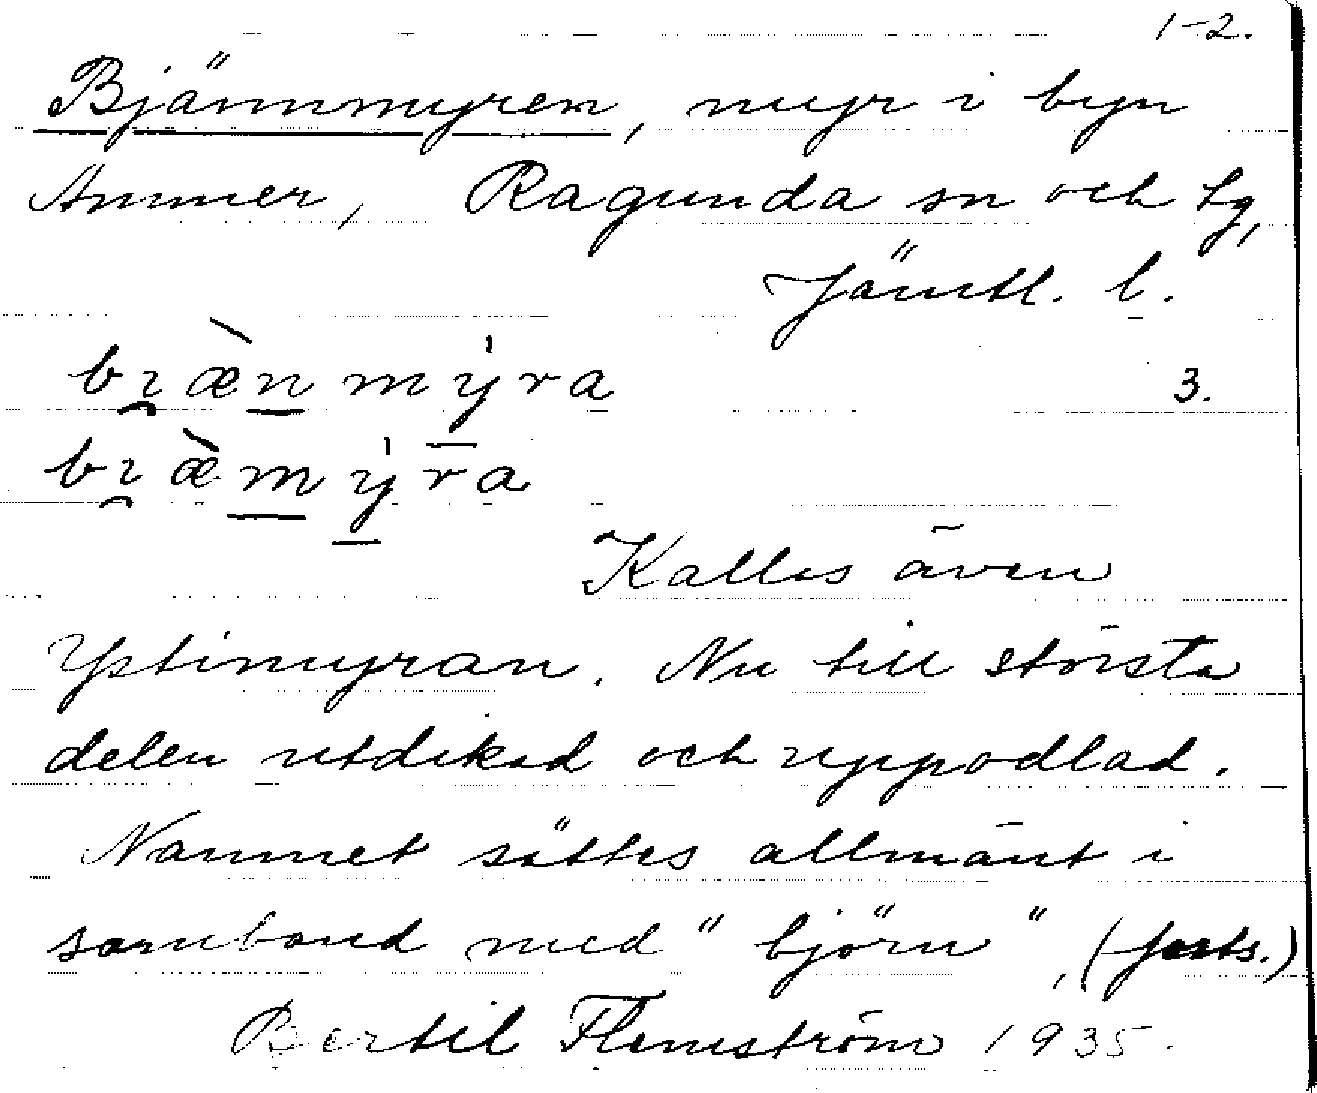 1-2.
Bjännmyren, myr i byn
Ammer, Ragunda sn och tg,
Jämtl. l.
bɿæ̀nmýra 3.
bɿæ̀mýra
Kallas även
Ystimyran. Nu till största
delen utdikad och uppodlad.
Namnet sättes allmänt i
samband med "björn", (forts.)
Bertil Flemström 1935.